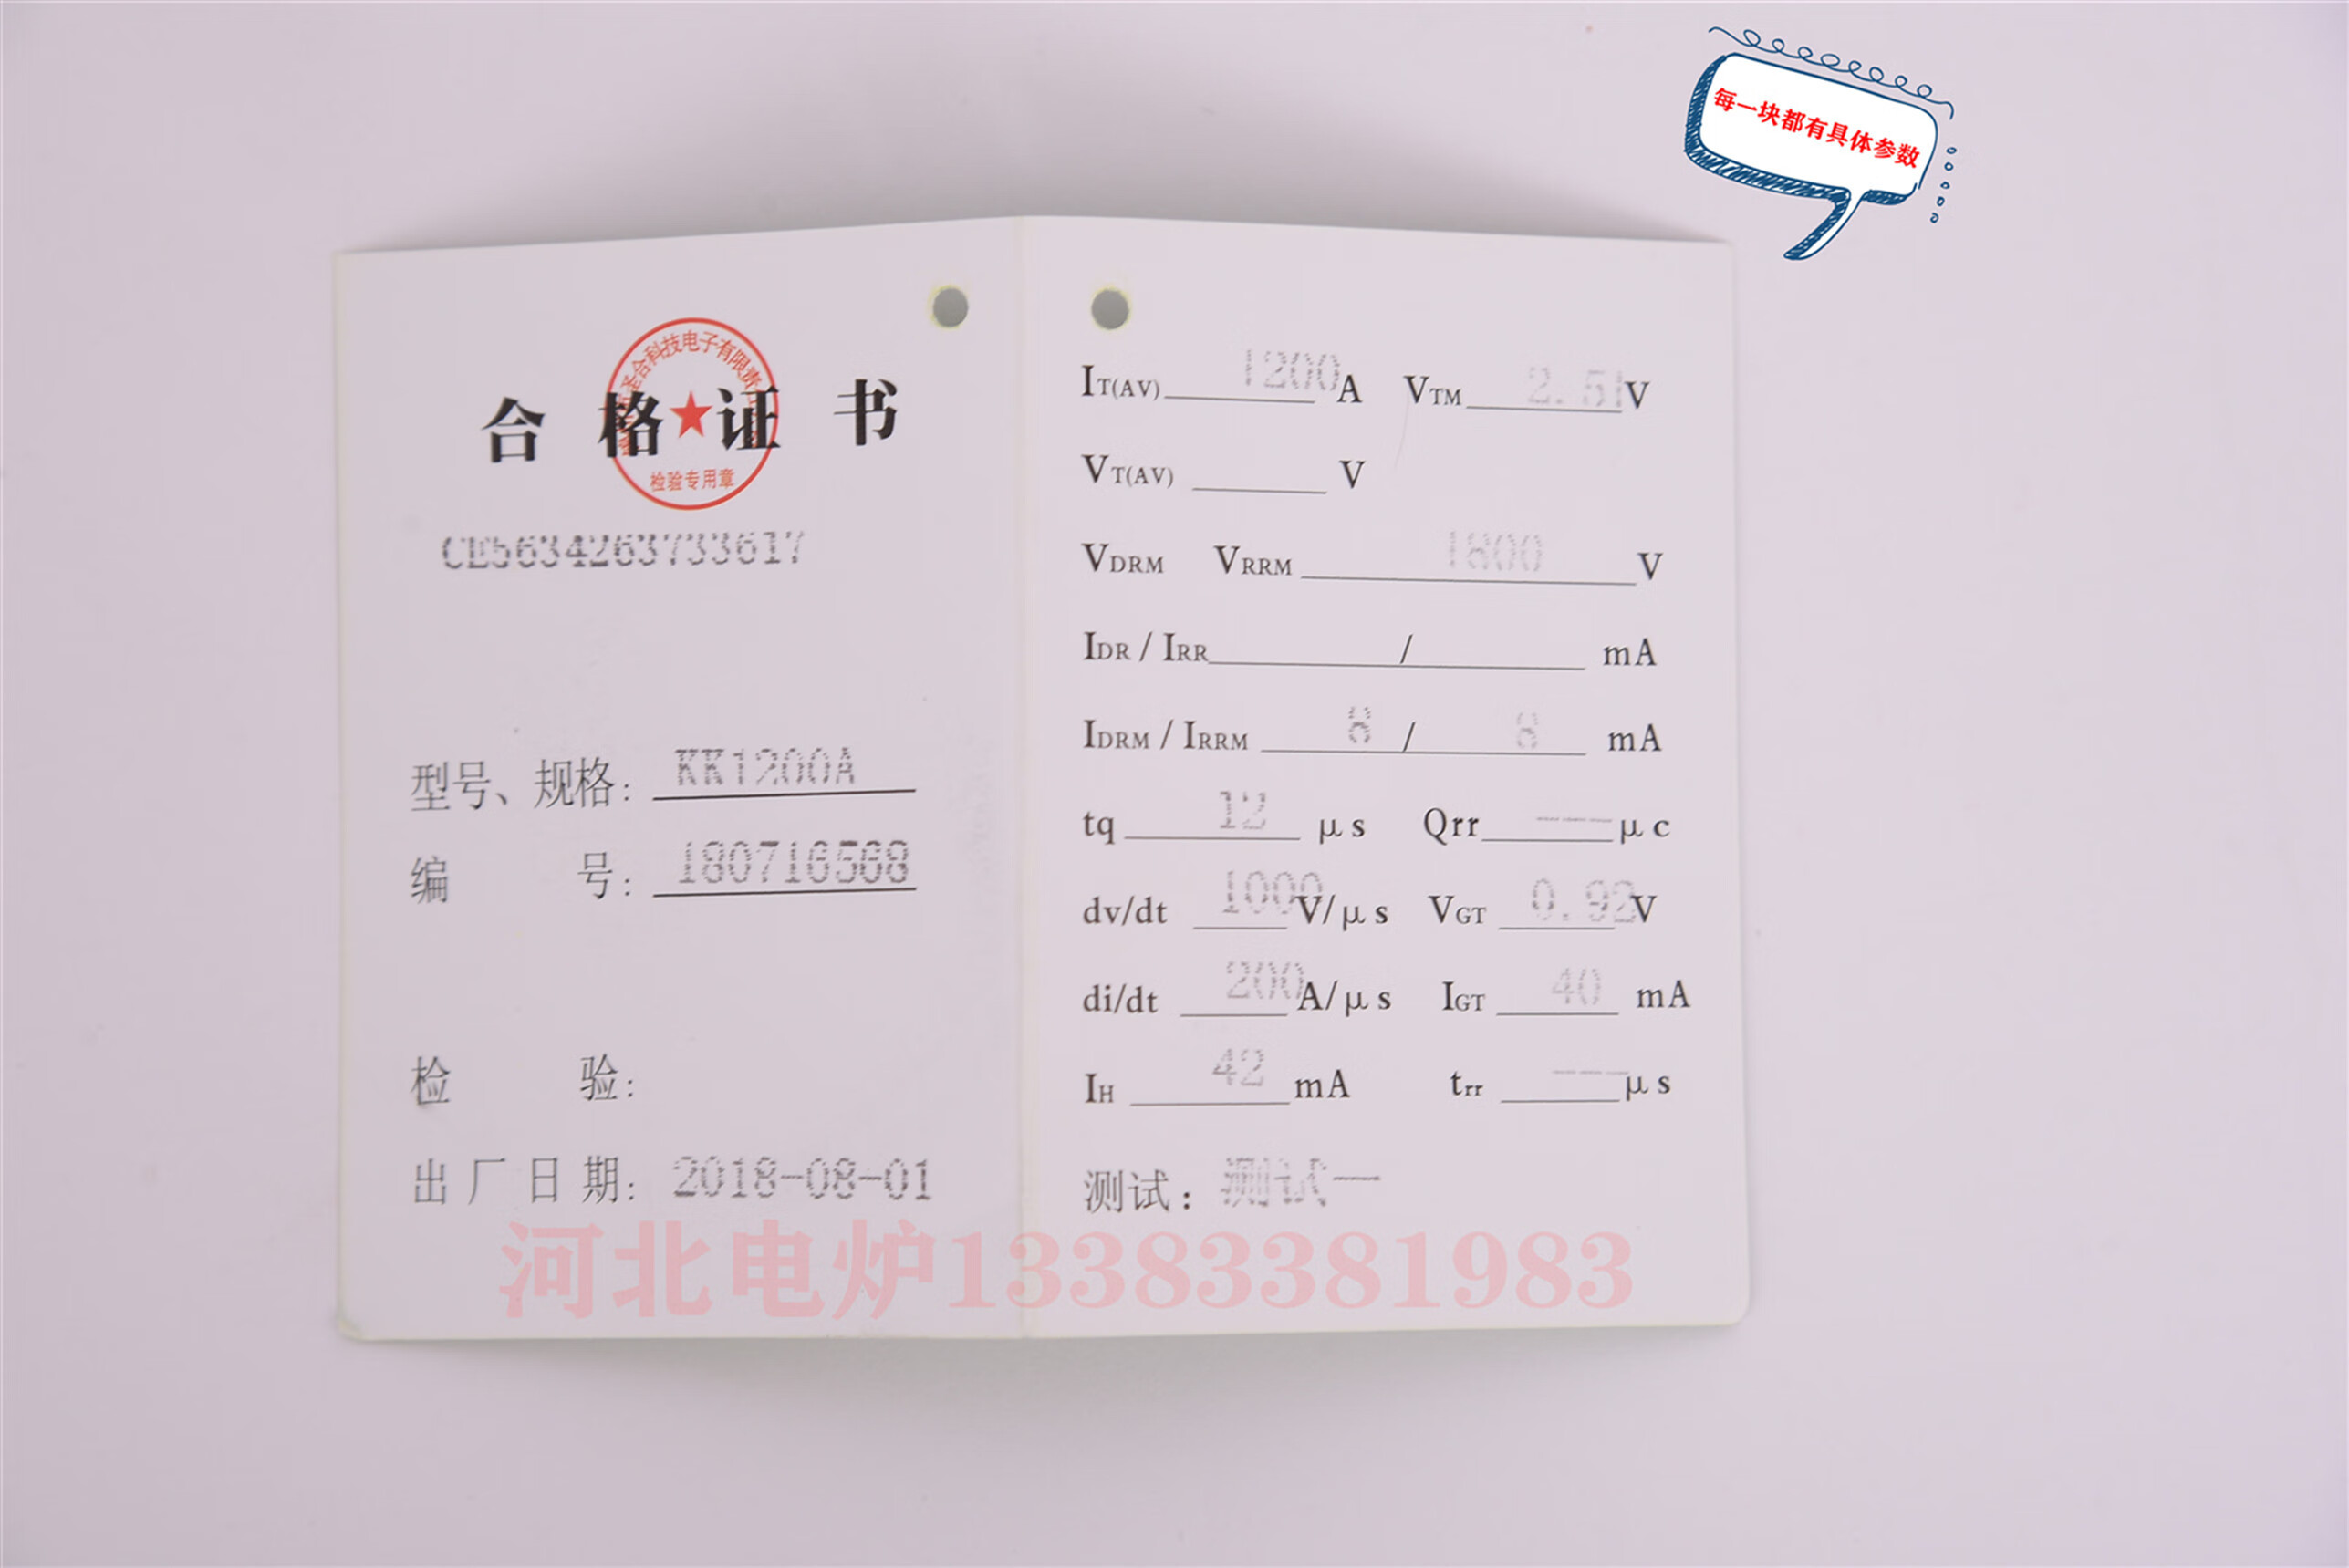 每一块都有具体参数
圣合科技电子有限责
合格证书
检验专用章
CE5634263733617
型号、规格：KK1200A
编号：180716568
检验：
出厂日期：2018-08-01
IT(AV) 1200 A VTM 2.51 V
VT(AV) V
VDRM VRRM 1600 V
IDR / IRR / mA
IDRM / IRRM 8 / 8 mA
tq 12 μs Qrr ---- μc
dv/dt 1000 V/μs VGT 0.92 V
di/dt 200 A/μs IGT 40 mA
IH 42 mA trr ---- μs
测试：测试一
河北电炉13383381983